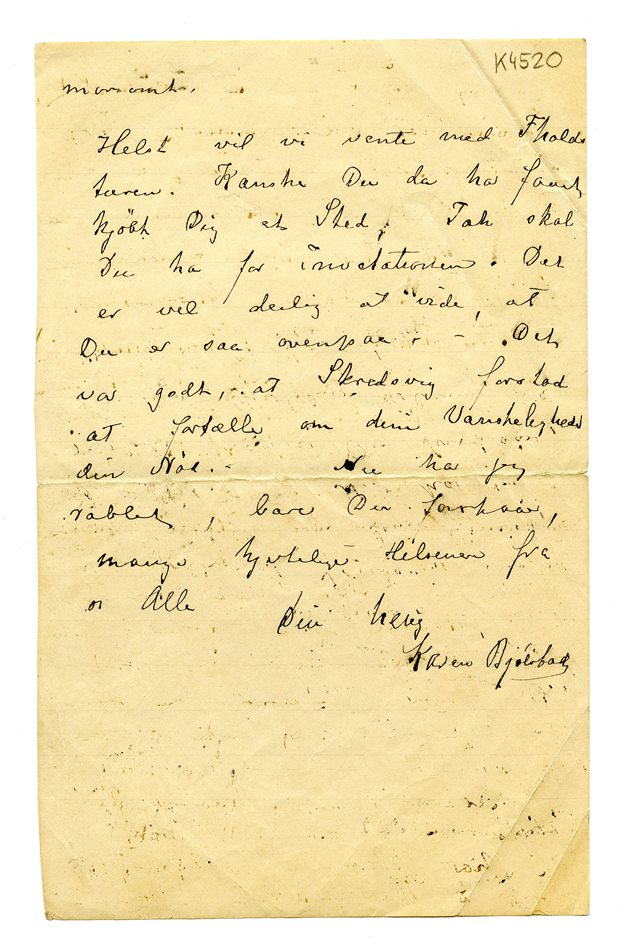 K4520
morsomt.
Helst vil vi vente med Fhold
tæren. Kanske Du da ha faaet
kjöbt Dig et Sted, Tak skal
Du ha for invitationen. Det
er vel deilig at vide, at
Du er saa ovenpaa. - - Det
var godt, at Skredsvig forstod
at fortælle om din Vanskelighed
din Nöd. - Nu ha jeg
rablet, bare Du
mange hjertelige Hilsener fra
os Alle
Din heng
Karen Bjölstad